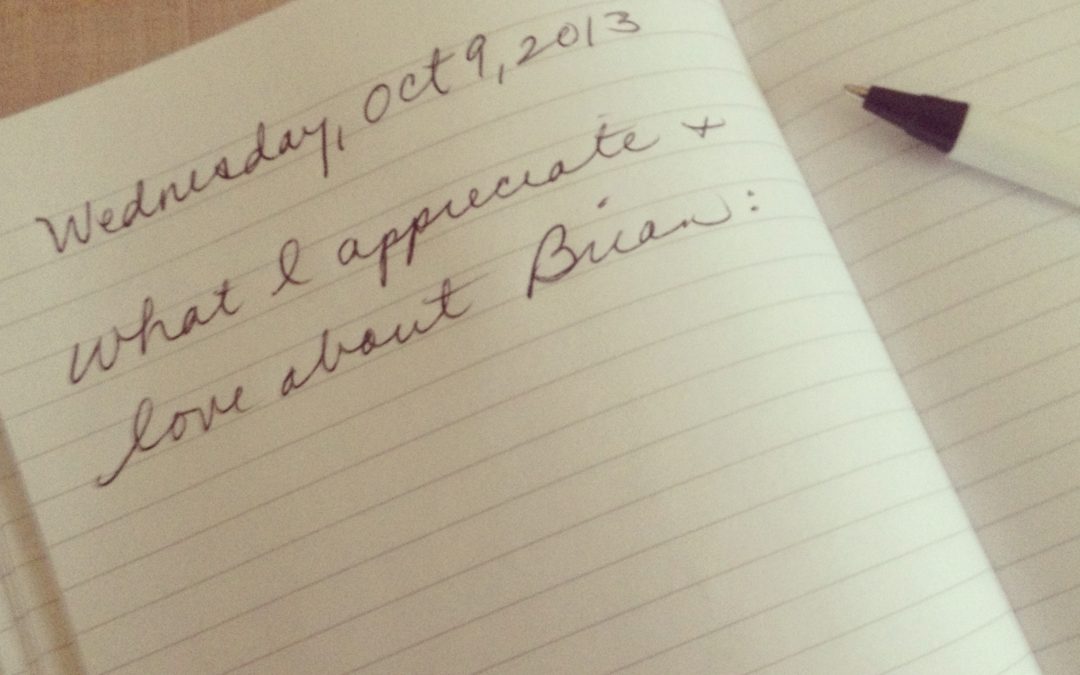 Wednesday, Oct 9, 2013
What I appreciate +
love about Brian: